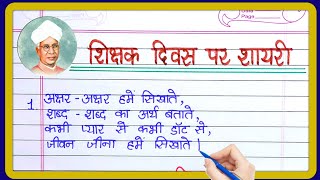 Page
शिक्षक दिवस पर शायरी
1 अक्षर - अक्षर हमे सिखाते,
शब्द - शब्द का अर्थ बताते,
कभी प्यार से कभी डाँट से,
जीवन जीना हमे सिखाते |